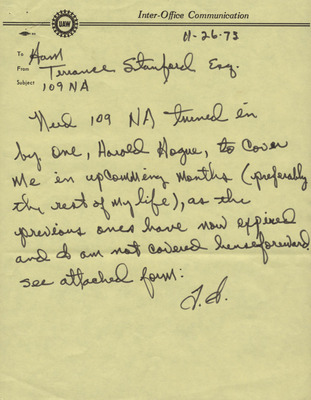 UAW
Inter-Office Communication
11-26-73
To Ham
From Terrance Stanford Esq.
Subject 109 NA
Need 109 NA turned in
by one, Harold Hogue, to cover
me in upcomming months (preferably
the rest of my life), as the
previous ones have now expired
and I am not covered henseforeward.
see attached form:
T.S.